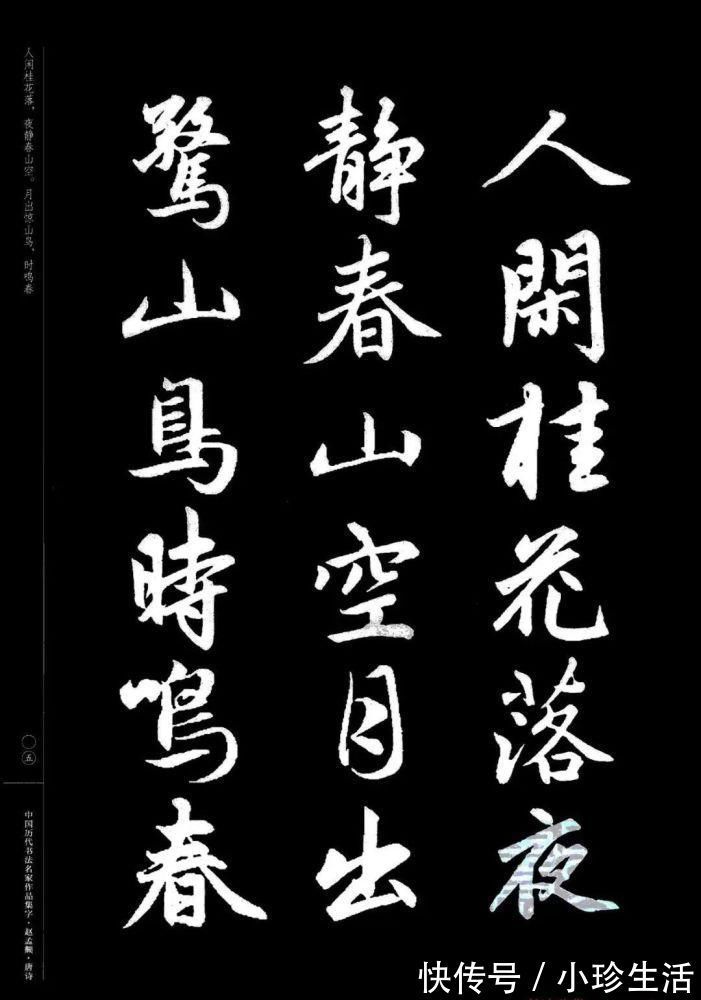 人閑桂花落夜
静春山空月出
驚山鳥時鳴春
人闲桂花落，夜静春山空。月出惊山鸟，时鸣春
〇五
中国历代书法名家作品集字·赵孟頫·唐诗
快传号/小珍生活